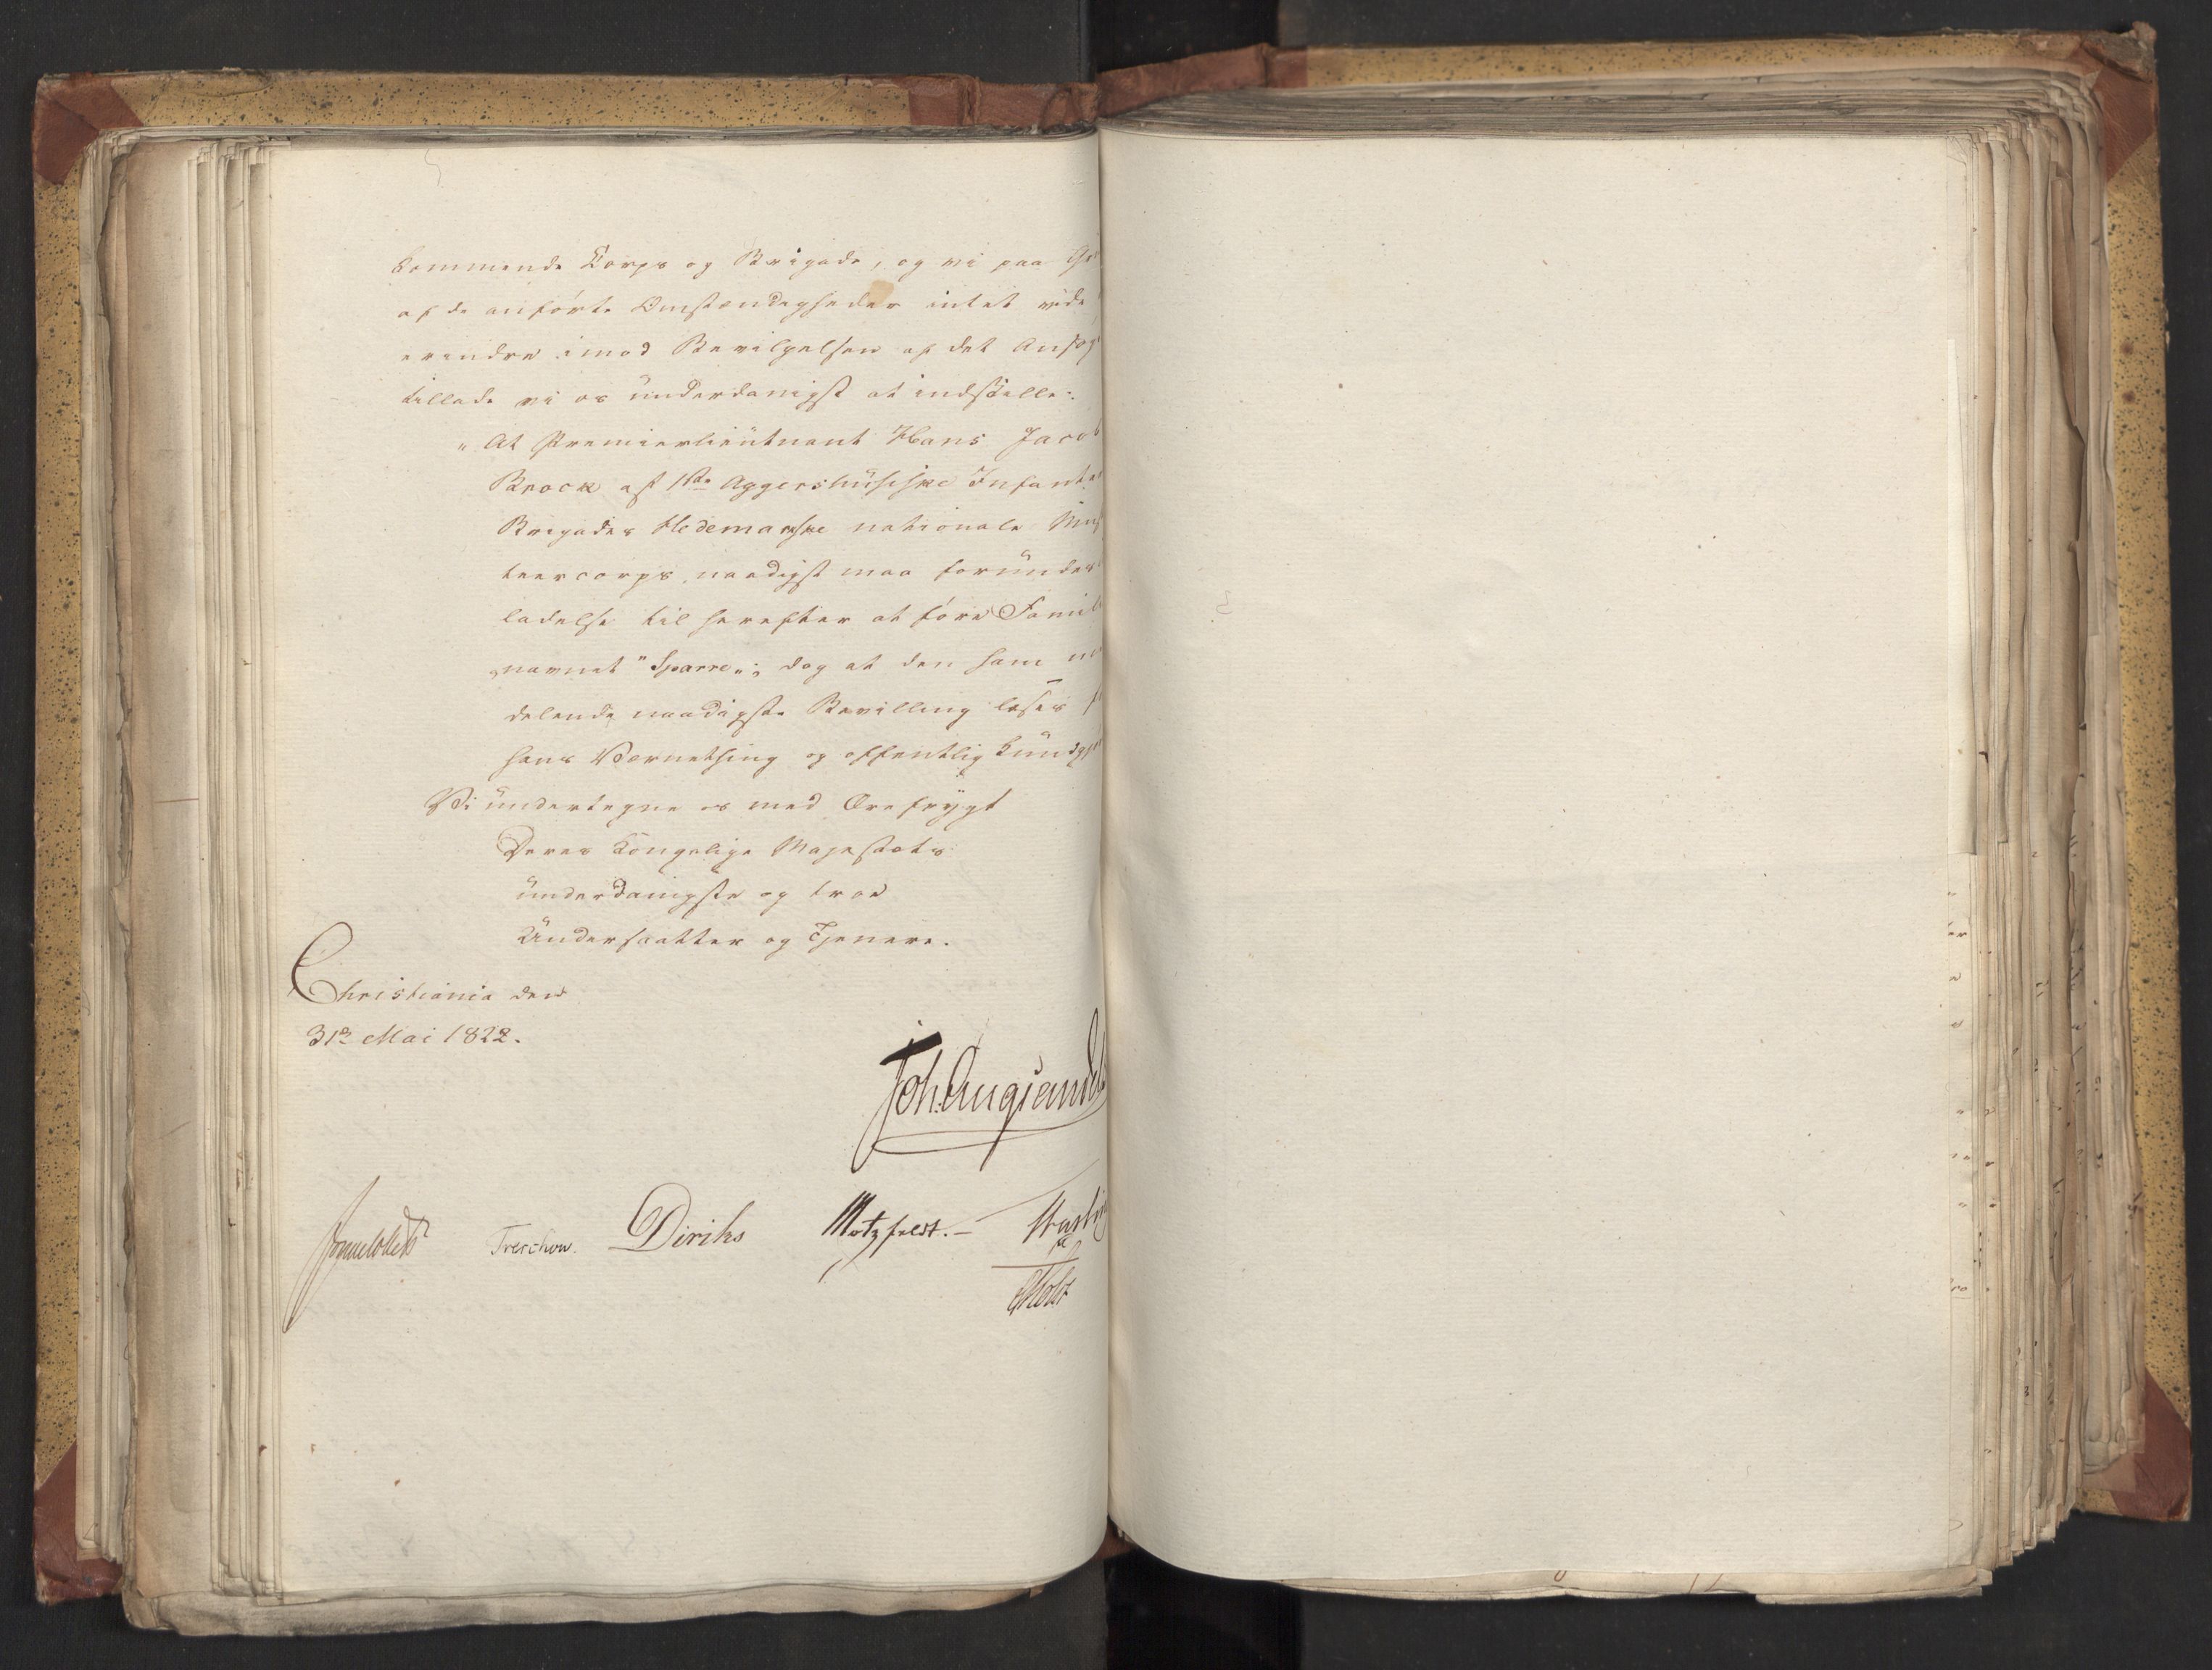 kommende Korps og Brigade, og vi paa
af de anförte Omstændigheder intet vide
erindre imod Bevilgelsen af det Ansög
tillade vi os underdanigst at indstille:
"At Premierlieutnant Hans Jacob
Brock af 1ste Aggershusiske Infante
Brigades Hedemarkske nationale Mus
teercorps, naadigst maa forundes
ladelse til herefter at före Famil
navnet "Sparre"; dog at den ham
delende naadigste Bevilling læses
hans Værnething og offentlig kundgj
Vi undertegne os med Ærefrygt
Deres Kongelige Majestæts
underdanigste og troe
Undersaatter og Tjenere.
Christiania den
31e Mai 1822.
Joh: Aug Sandels
Sommerhielm Treschow. Diriks Motzfeldt.
Holst